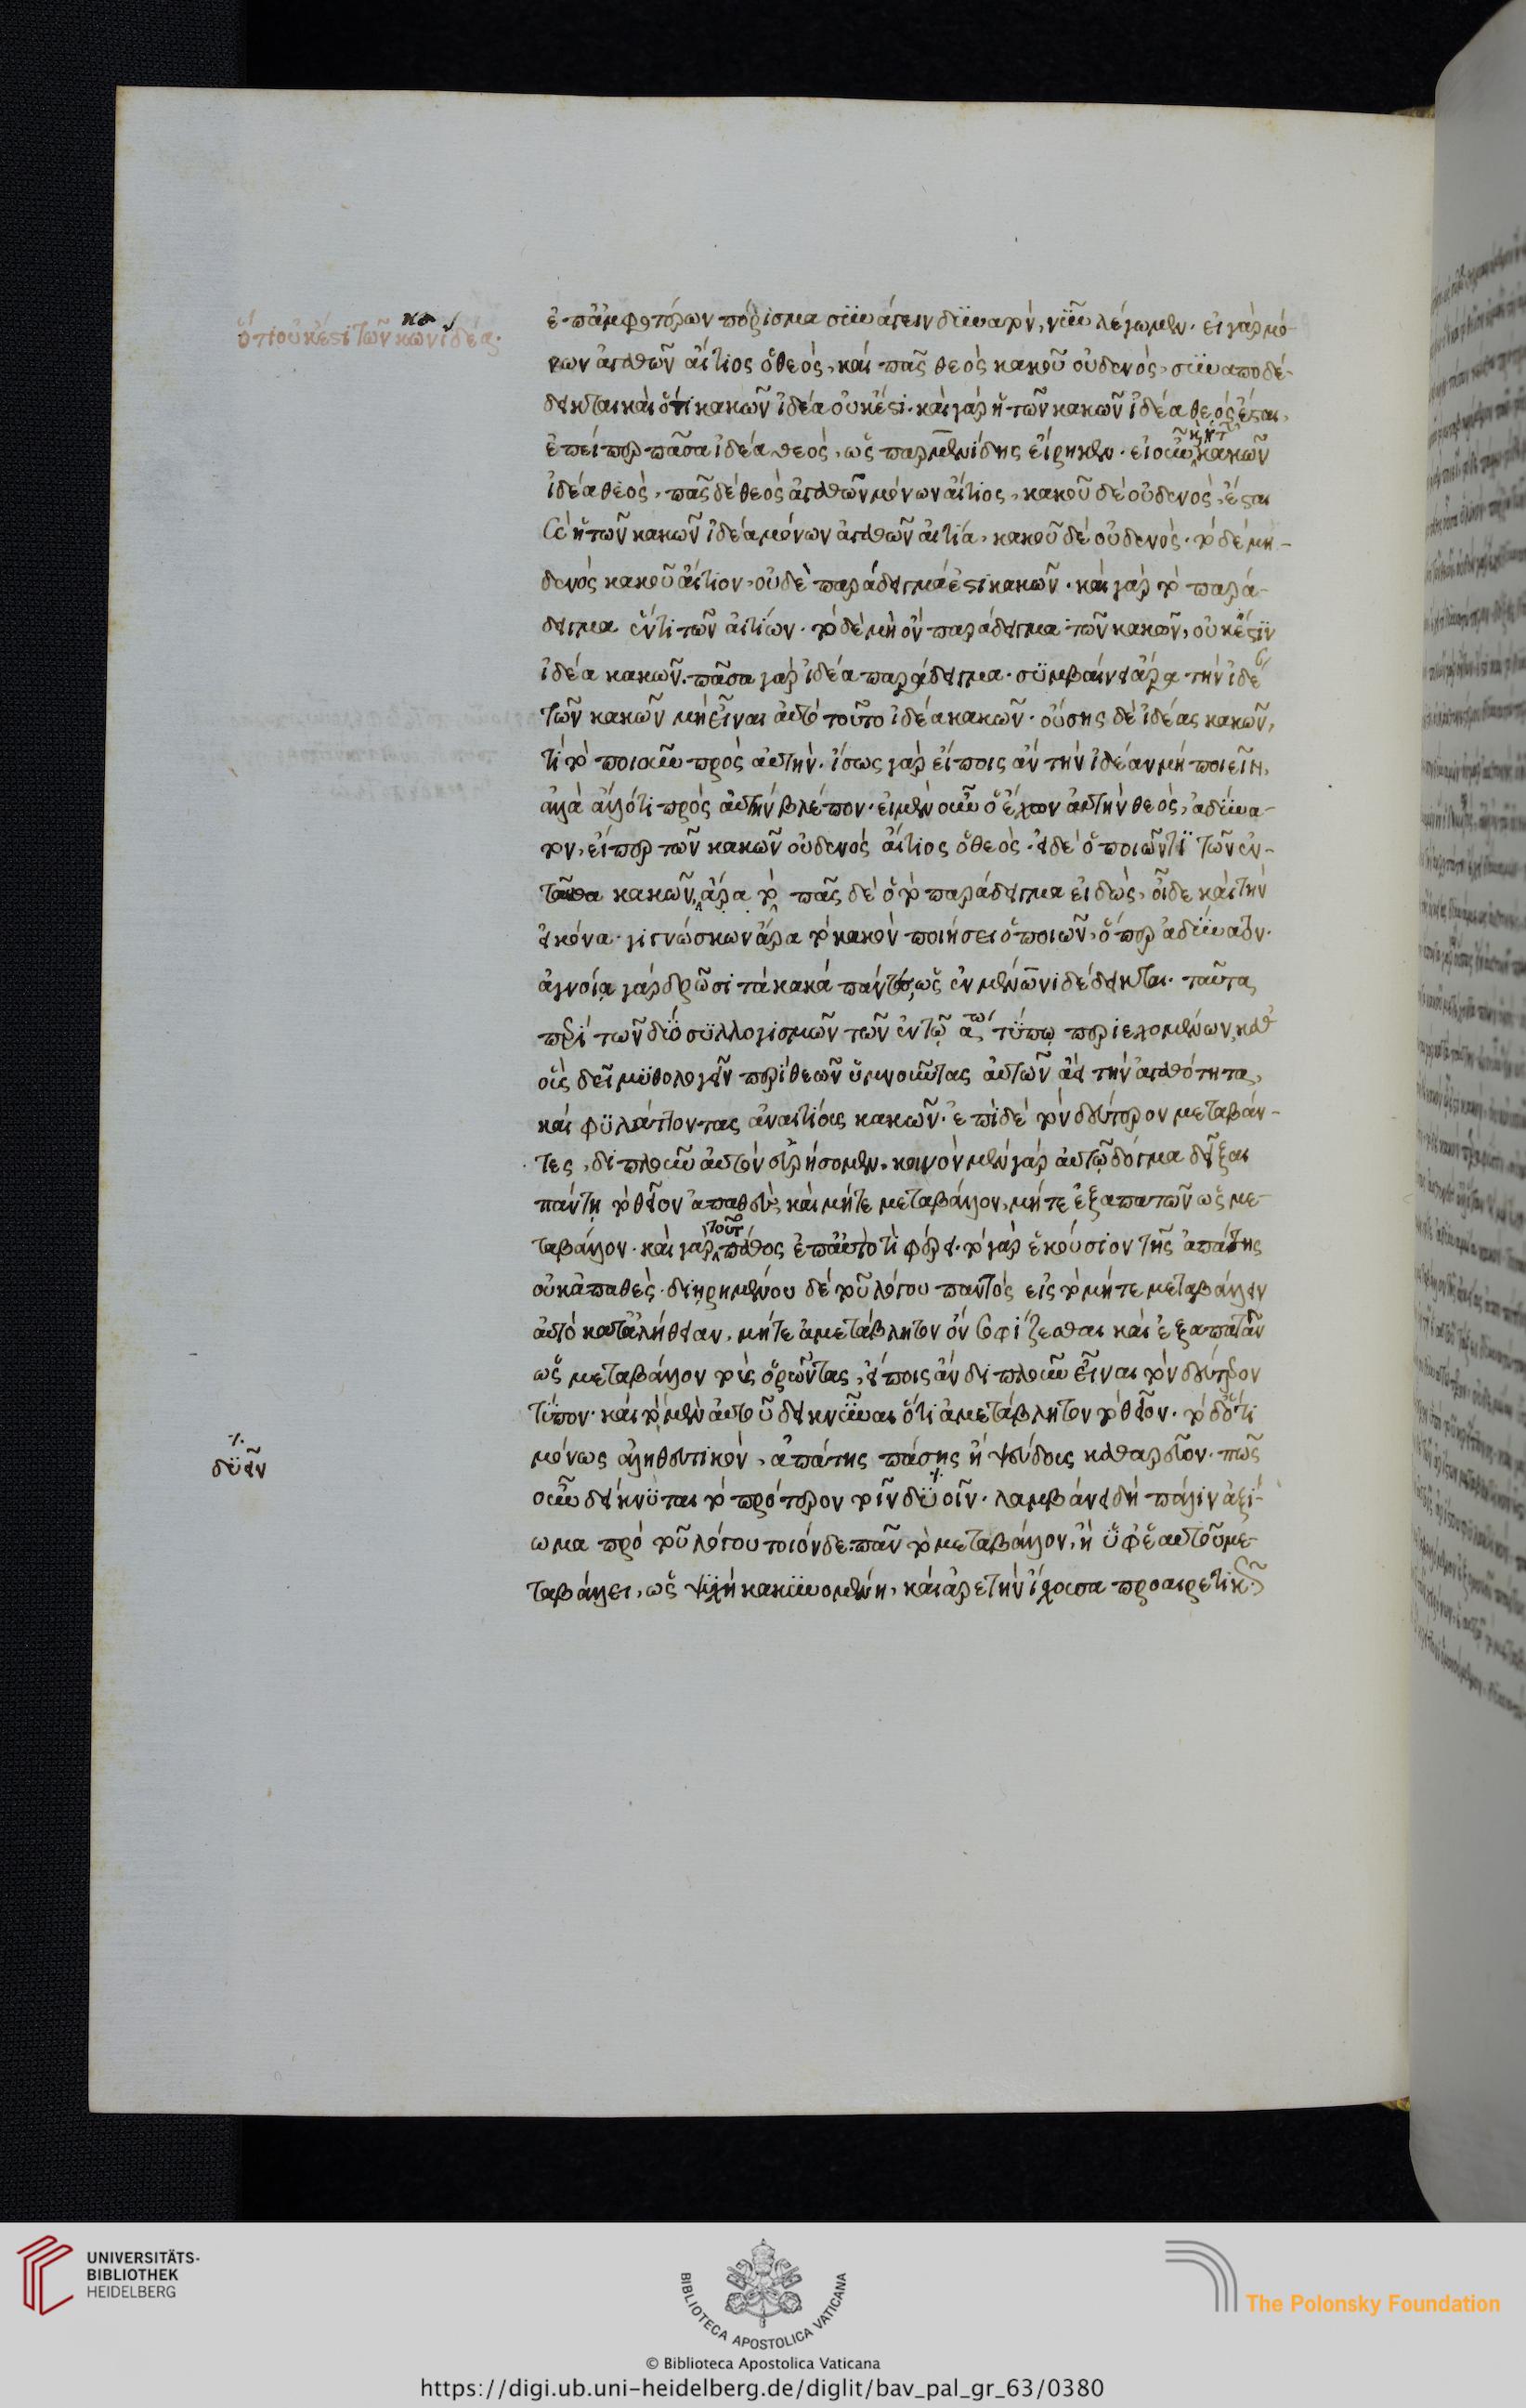 ὅτι οὐκ ἔστι τῶν κακῶν ἰδέα.
ἐπ' ἀμφοτέρων πόρισμα συνάγειν δυνατὸν, νῦν λέγωμεν. εἰ γὰρ μό-
νων ἀγαθῶν αἴτιος ὁ θεὸς, καὶ πᾶς θεὸς κακοῦ οὐδενὸς, συναποδέ-
δεικται καὶ ὅτι κακῶν ἰδέα οὐκ ἔστι. καὶ γὰρ ἡ τῶν κακῶν ἰδέα θεὸς ἔσται,
ἐπείπερ πᾶσα ἰδέα θεὸς, ὡς παρμενίδης εἴρηκεν. εἰ οὖν καὶ ἡ τῶν κακῶν
ἰδέα θεὸς, πᾶς δὲ θεὸς ἀγαθῶν μόνων αἴτιος, κακοῦ δὲ οὐδενὸς, ἔσται
καὶ ἡ τῶν κακῶν ἰδέα μόνων ἀγαθῶν αἰτία, κακοῦ δὲ οὐδενὸς. τὸ δὲ μη-
δενὸς κακοῦ αἴτιον, οὐδὲ παράδειγμά ἐστι κακῶν. καὶ γὰρ τὸ παρά-
δειγμα ἕν τι τῶν αἰτίων. τὸ δὲ μὴ ὂν παράδειγμα τῶν κακῶν, οὐκ ἔστιν
ἰδέα κακῶν. πᾶσα γὰρ ἰδέα παράδειγμα. συμβαίνει ἄρα τὴν ἰδέ
τῶν κακῶν μὴ εἶναι αὐτὸ τοῦτο ἰδέα κακῶν. οὔσης δὲ ἰδέας κακῶν,
τί τὸ ποιοῦν πρὸς αὐτὴν. ἴσως γὰρ εἴποις ἂν τὴν ἰδέαν μὴ ποιεῖν,
ἀλλὰ ἄλλό τι πρὸς αὐτὴν βλέπον. εἰ μὲν οὖν ὁ ἔχων αὐτὴν θεὸς, ἀδύνα-
τον, εἴπερ τῶν κακῶν οὐδενὸς αἴτιος ὁ θεὸς. εἰ δὲ ὁ ποιῶν τι τῶν ἐν-
ταῦθα κακῶν, ἄρα τὸ πᾶς δὲ ὁ τὸ παράδειγμα εἰδὼς, οἶδε καὶ τὴν
εἰκόνα. γιγνώσκων ἄρα τὸ κακὸν ποιήσει ὁ ποιῶν, ὅπερ ἀδύνατον.
ἀγνοίᾳ γὰρ δρῶσι τὰ κακὰ πάντες, ὡς ἐν μένωνι δέδεικται. ταῦτα
περὶ τῶν δύο συλλογισμῶν τῶν ἐν τῷ α τῳ τύπῳ περιεχομένων, καθ'
οὓς δεῖ μυθολογεῖν περὶ θεῶν ὑμνοῦντας αὐτῶν ἀεὶ τὴν ἀγαθότητα,
καὶ φυλάττοντας ἀναιτίους κακῶν. ἐπὶ δὲ τὸν δεύτερον μεταβάν-
τες, διπλοῦν αὐτὸν εὑρήσομεν. κοινὸν μὲν γὰρ αὐτῷ δόγμα δεῖξαι
πάντη τὸ θεῖον ἀπαθὲς, καὶ μήτε μεταβάλλον, μήτε ἐξαπατῶν ὡς με-
ταβάλλον. καὶ γὰρ τοῦτο πάθος ἐπ' αὐτό τι φέρει. τὸ γὰρ ἑκούσιον τῆς ἀπάτης
οὐκ ἀπαθὲς. διῃρημένου δὲ τοῦ λόγου παντὸς εἰς τὸ μήτε μεταβάλλειν
αὐτὸ κατ' ἀλήθειαν, μήτε ἀμετάβλητον ὂν σοφίζεσθαι καὶ ἐξαπατᾶν
ὡς μεταβάλλον τοὺς ὁρῶντας, εἴποις ἂν διπλοῦν εἶναι τὸν δεύτερον
τύπον. καὶ τὸ μὲν αὐτοῦ δεικνύναι ὅτι ἀμετάβλητον τὸ θεῖον. τὸ δ' ὅτι
μόνως ἀληθευτικὸν, ἀπάτης πάσης ἢ ψεύδους καθαρεῦον. πῶς
δυεῖν
οὖν δείκνυται τὸ πρότερον τοῖν δυοῖν. λαμβάνει δὴ πάλιν ἀξί-
ωμα πρὸ τοῦ λόγου τοιόνδε. πᾶν τὸ μεταβάλλον, ἢ ὑφ' ἑαυτοῦ με-
ταβάλλει, ὡς ψυχὴ κακυνομένη, καὶ ἀρετὴν ἴχουσα προαιρετικ
UNIVERSITÄTS-
BIBLIOTHEK
HEIDELBERG
BIBLIOTECA APOSTOLICA VATICANA
The Polonsky Foundation
© Biblioteca Apostolica Vaticana
https://digi.ub.uni-heidelberg.de/diglit/bav_pal_gr_63/0380